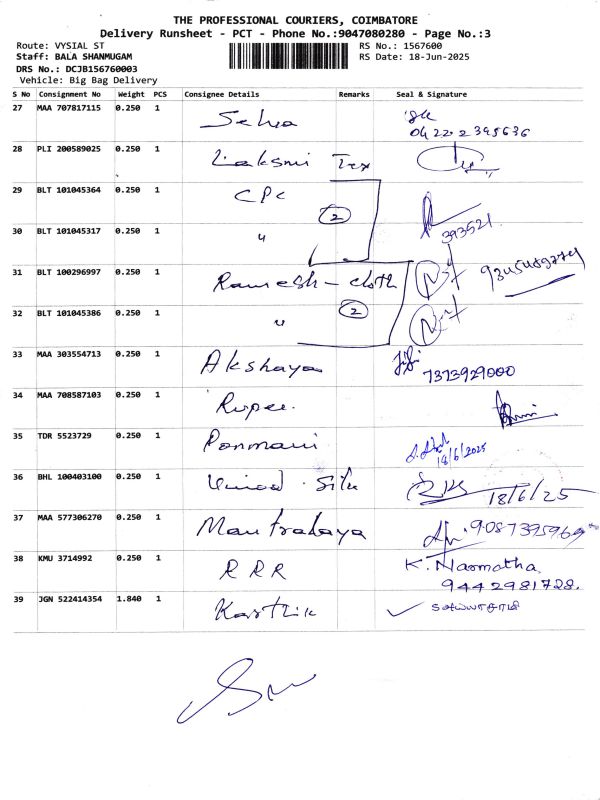 THE PROFESSIONAL COURIERS, COIMBATORE
Delivery Runsheet - PCT - Phone No.:9047080280 - Page No.:3
Route: VYSIAL ST
Staff: BALA SHANMUGAM
DRS No.: DCJB156760003
Vehicle: Big Bag Delivery
RS No.: 1567600
RS Date: 18-Jun-2025
S No Consignment No Weight PCS Consignee Details Remarks Seal & Signature
27 MAA 707817115 0.250 1 Selva
0422 2395636
28 PLI 200589025 0.250 1 Laksmi Tex
29 BLT 101045364 0.250 1 CPC
2
393521
30 BLT 101045317 0.250 1 "
31 BLT 100296997 0.250 1 Ramesh - cloth
2
32 BLT 101045386 0.250 1 "
33 MAA 303554713 0.250 1 Akshaya
7373929000
34 MAA 708587103 0.250 1 Rupee.
35 TDR 5523729 0.250 1 Ponmani
18/6/2025
36 BHL 100403100 0.250 1 Vinod . Silk
18/6/25
37 MAA 577306270 0.250 1 Mantralaya
38 KMU 3714992 0.250 1 RRR K. Narmatha
9442981728.
39 JGN 522414354 1.840 1 Karthik